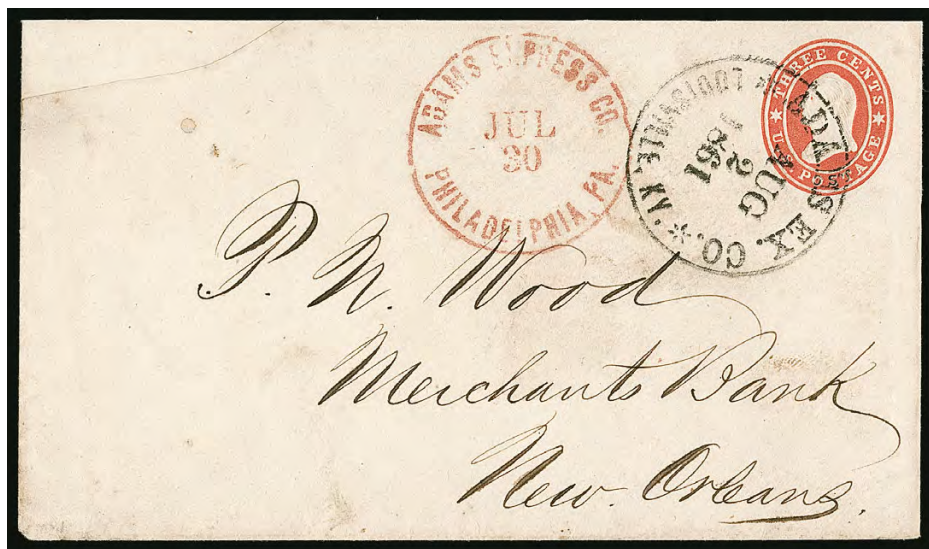 ADAMS EXPRESS CO.
JUL
30
PHILADELPHIA, PA.
ADAMS EX. CO.
AUG
2
1861
* LOUISVILLE, KY. *
THREE CENTS
U.S. POSTAGE
P. N. Wood
Merchants Bank
New Orleans.